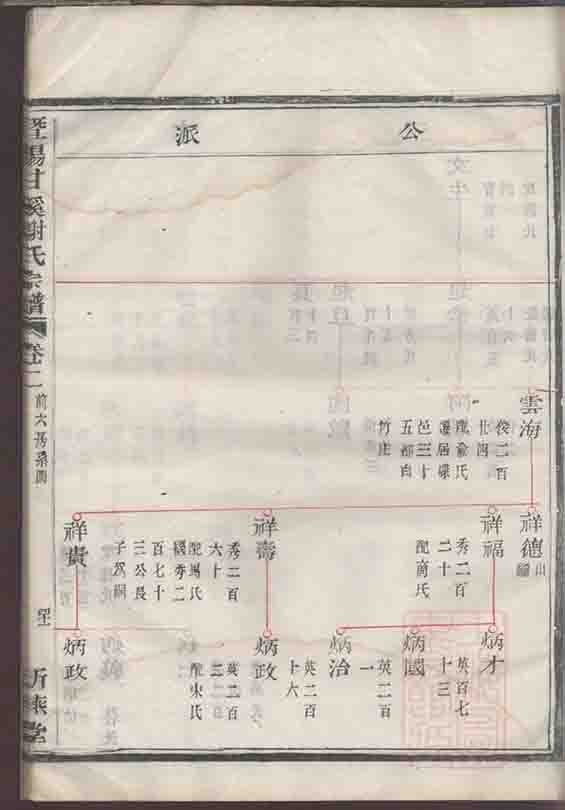 公派
雲海
俊二百
廿四
配俞氏
遷居碌
邑三十
五都白
竹庄
祥德
出繼
祥福
秀二百
二十
配商氏
祥壽
秀二百
六十
配馬氏
繼秀二
百七十
三公長
子為嗣
祥貴
炳才
英百七
十三
炳國
英二百
一
炳治
英二百
十六
炳政
英二百
配宋氏
炳政
甘溪謝氏宗譜
卷二
前六房系圖